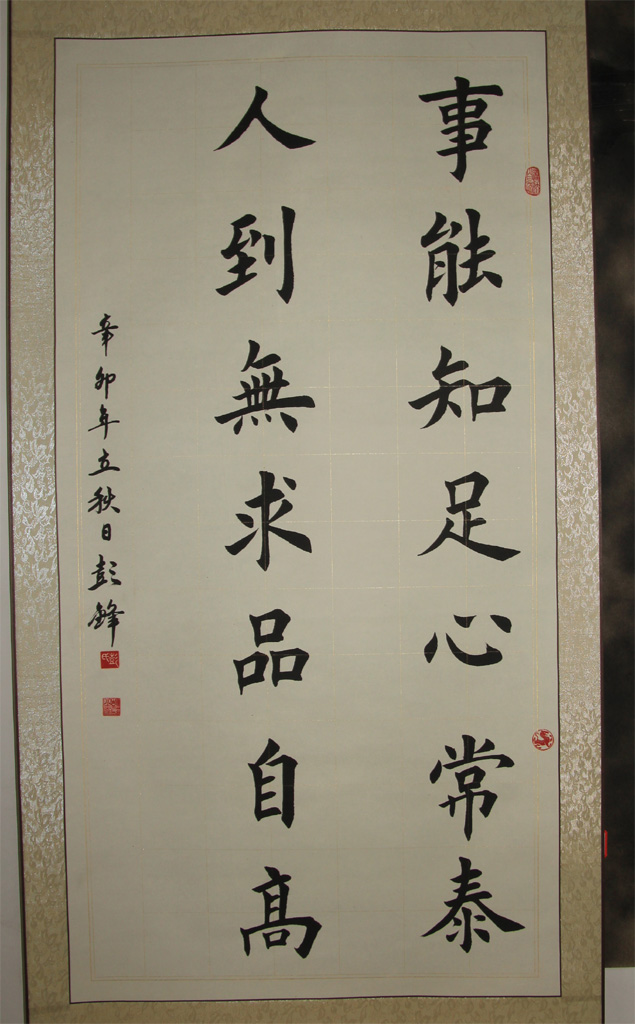 事能知足心常泰
人到無求品自高
辛卯年立秋日彭鋒